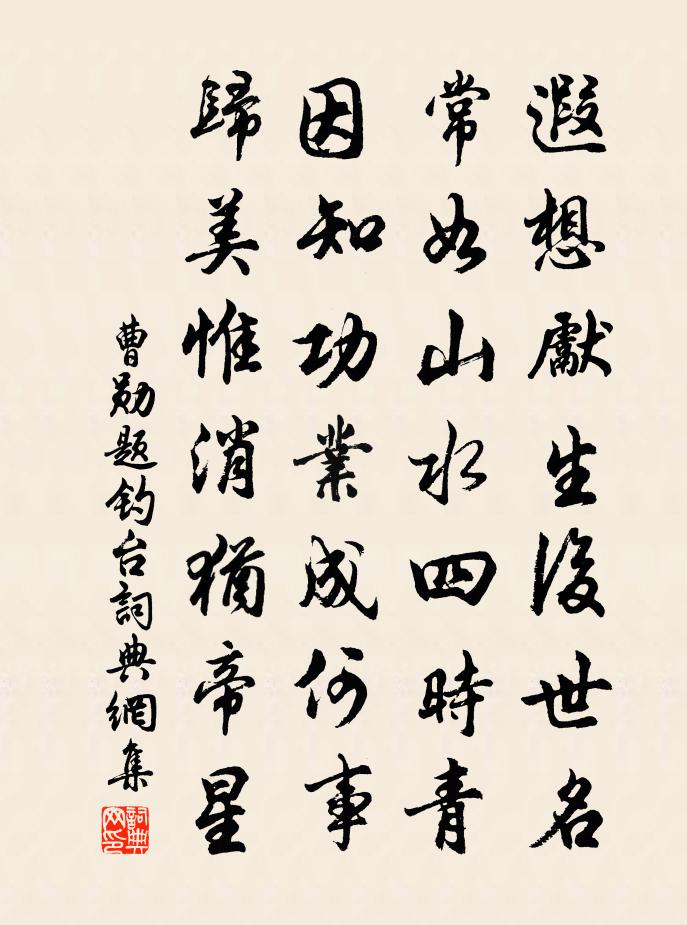 遐想獻生後世名
常如山水四時青
因知功業成何事
歸美惟消猶帝星
曹勛題釣台詞典網集
詞典網印